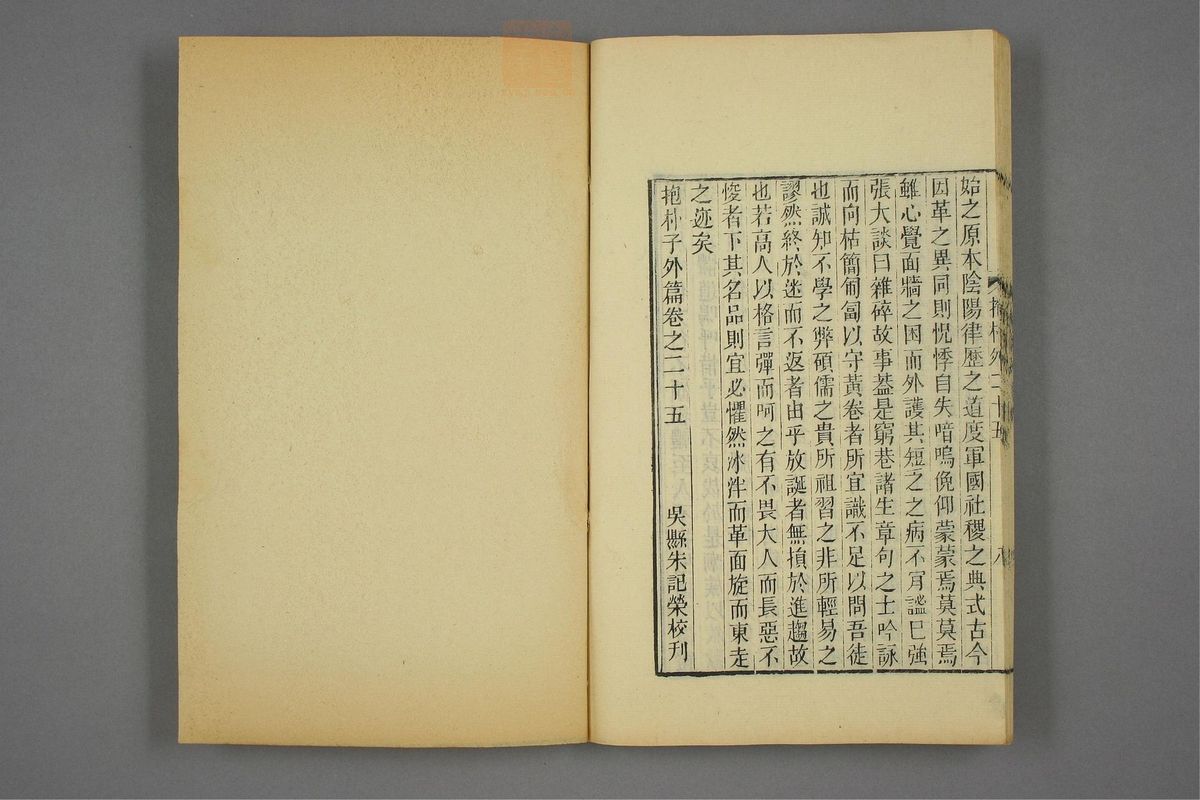 始之原本陰陽律歷之道度軍國社稷之典式古今
因革之異同則怳悸自失喑嗚俛仰蒙蒙焉莫莫焉
雖心覺面牆之困而外護其短乏之病不肎謐已強
張大談曰雜碎故事蓋是窮巷諸生章句之士吟詠
而向枯簡匍匐以守黃卷者所宜識不足以問吾徒
也誠知不學之弊碩儒之貴所祖習之非所輕易之
謬然終於迷而不返者由乎放誕者無損於進趨故
也若高人以格言彈而呵之有不畏大人而長惡不
悛者下其名品則宜必懼然冰泮而革面旋而東走
之迹矣
抱朴子外篇卷之二十五 吳縣朱記榮校刋
抱朴外二十五 八